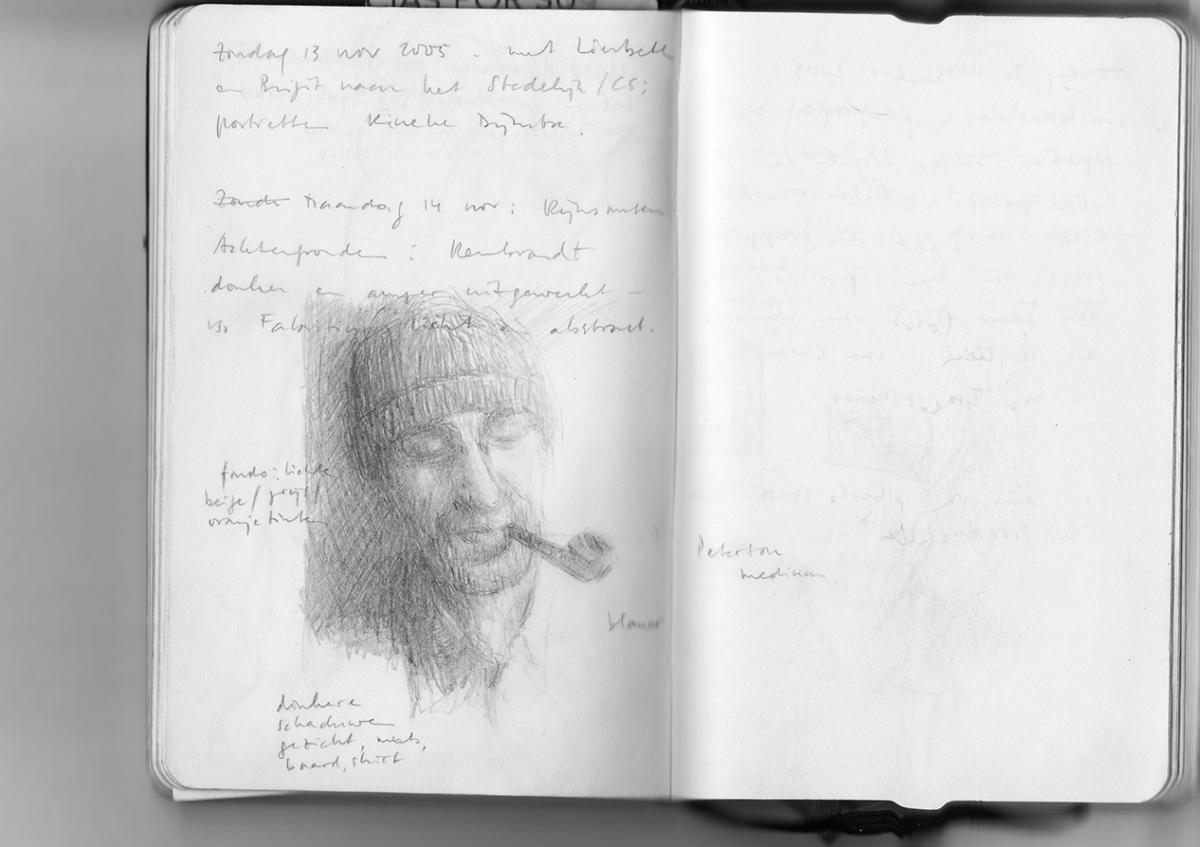 Zondag 13 nov 2005 - met Liesbeth
en Brigit naar het Stedelijk/CS;
portretten Rineke Dijkstra.
Zonda Maandag 14 nov: Rijksmuseum
Achtergronden: Rembrandt
donker en amper uitgewerkt -
vs. Fabritius licht en abstract.
fondo: lichte
beige/grijs/
oranje tinten
Peterson
medium
blauw
donkere
schaduwen
gezicht, muts,
baard, shirt